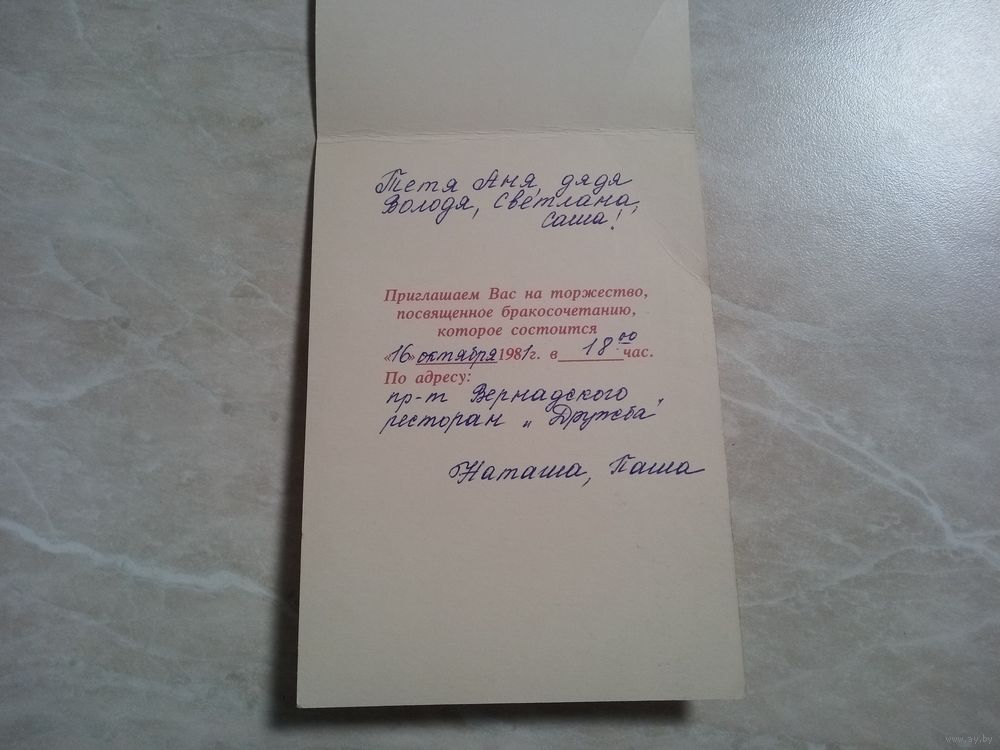 Тетя Аня, дядя
Володя, Светлана,
Саша!
Приглашаем Вас на торжество,
посвященное бракосочетанию,
которое состоится
«16» октября 1981г. в 18⁰⁰ час.
По адресу:
пр-т Вернадского,
ресторан „Дружба"
Наташа, Паша
www.ay.by